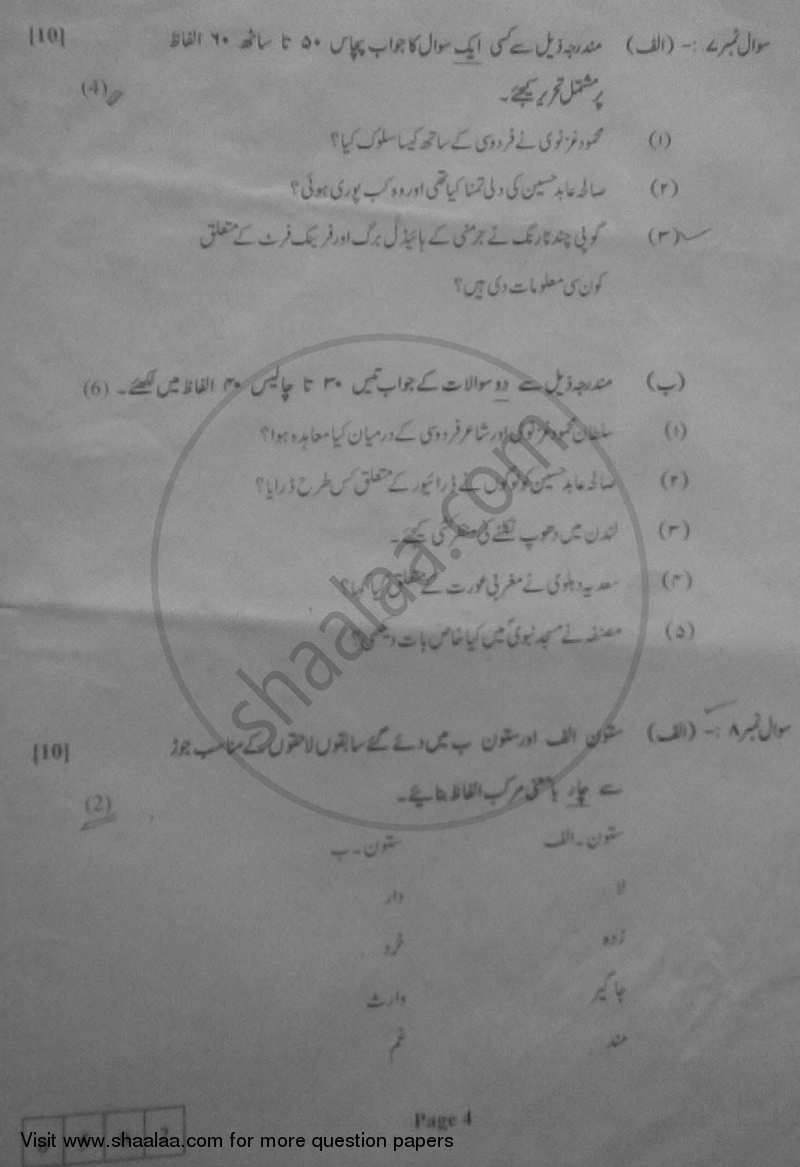 سوال نمبر ۷ :- (الف) مندرجہ ذیل سے کسی ایک سوال کا جواب پچاس ۵۰ تا ساٹھ ۶۰ الفاظ [10]
پر مشتمل تحریر کیجئے۔ (4)
(۱) محمود غزنوی نے فردوسی کے ساتھ کیسا سلوک کیا؟
(۲) صالحہ عابد حسین کی دلی تمنا کیا تھی اور وہ کب پوری ہوئی؟
(۳) گوپی چند نارنگ نے جرمنی کے ہائیڈل برگ اور فرینک فرٹ کے متعلق
کون سی معلومات دی ہیں؟
(ب) مندرجہ ذیل سے دو سوالات کے جواب تیس ۳۰ تا چالیس ۴۰ الفاظ میں لکھئے۔ (6)
(۱) سلطان محمود غزنوی اور شاعر فردوسی کے درمیان کیا معاہدہ ہوا؟
(۲) صالحہ عابد حسین کو لوگوں نے ڈرائیور کے متعلق کس طرح ڈرایا؟
(۳) لندن میں دھوپ نکلنے کی منظر کشی کیجئے۔
(۴) سعدیہ دہلوی نے مغربی عورت کے متعلق کیا کہا؟
(۵) مصنفہ نے مسجد نبویؐ میں کیا خاص بات دیکھی؟
سوال نمبر ۸ :- (الف) ستون الف اور ستون ب میں دئے گئے سابقوں لاحقوں کے مناسب جوڑ [10]
سے چار بامعنی مرکب الفاظ بنایئے۔ (2)
ستون۔الف ستون۔ب
لا دار
زدہ خرد
جاگیر وارث
مند غم
Page 4
shaalaa.com
Visit www.shaalaa.com for more question papers